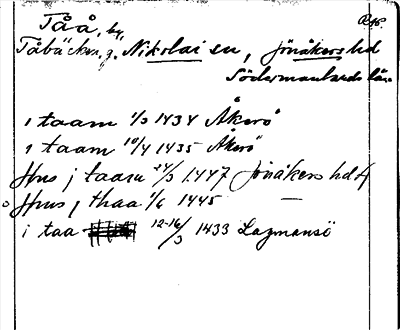 Tåå, by
Tåbäcken, g. Nikolai sn, Jönåkers hd
Södermanlands län
i taam 1/3 1434 Åkerö
i taam 10/4 1435 Åkerö
Hus j taaru 24/3 1447 Jönåkers hd
Hus j thaa 1/6 1445 —
i taa 12-16/3 1433 Lagmansö